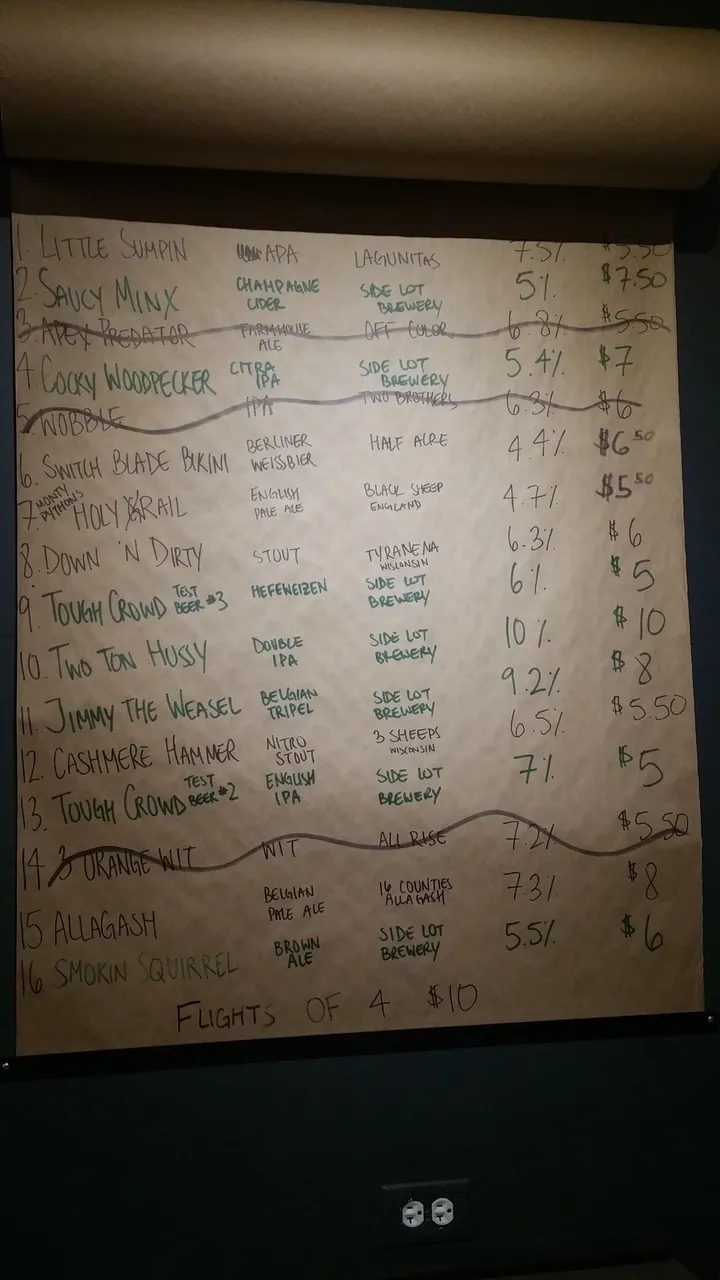 1. LITTLE SUMPIN APA LAGUNITAS 7.5% $5.50
2. SAUCY MINX CHAMPAGNE CIDER SIDE LOT BREWERY 5% $7.50
3. APEX PREDATOR FARMHOUSE ALE OFF COLOR 6.8% $5.50
4 COCKY WOODPECKER CITRA IPA SIDE LOT BREWERY 5.4% $7
5. WOBBLE IPA TWO BROTHERS 6.3% $6
6. SWITCH BLADE BIKINI BERLINER WEISSBIER HALF ACRE 4.4% $6.50
7. MONTY PYTHON'S HOLY GRAIL ENGLISH PALE ALE BLACK SHEEP ENGLAND 4.7% $5.50
8. DOWN 'N DIRTY STOUT TYRANENA WISCONSIN 6.3% $6
9. TOUGH CROWD TEST BEER #3 HEFEWEIZEN SIDE LOT BREWERY 6% $5
10. TWO TON HUSSY DOUBLE IPA SIDE LOT BREWERY 10% $10
11. JIMMY THE WEASEL BELGIAN TRIPEL SIDE LOT BREWERY 9.2% $8
12. CASHMERE HAMMER NITRO STOUT 3 SHEEPS WISCONSIN 6.5% $5.50
13. TOUGH CROWD TEST BEER #2 ENGLISH IPA SIDE LOT BREWERY 7% $5
14 3 ORANGE WIT WIT ALL RISE 7.2% $5.50
15 ALLAGASH BELGIAN PALE ALE 16 COUNTIES ALLAGASH 7.3% $8
16. SMOKIN SQUIRREL BROWN ALE SIDE LOT BREWERY 5.5% $6
FLIGHTS OF 4 $10